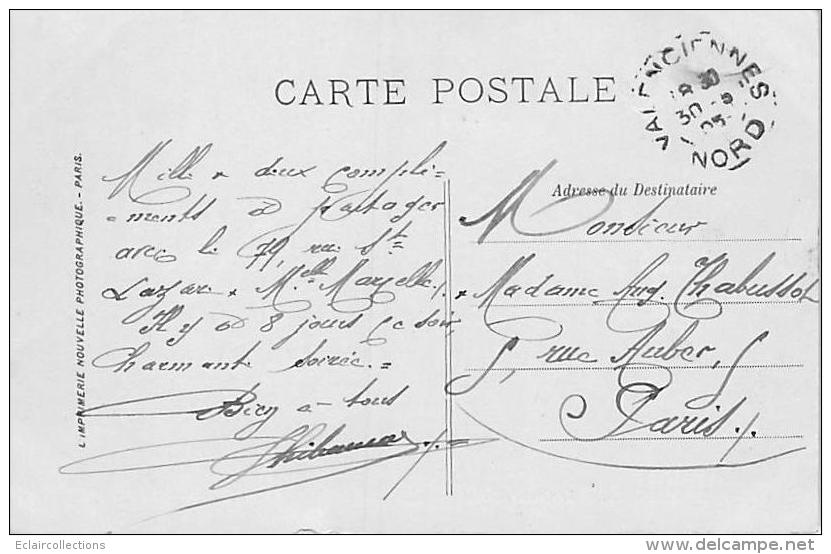 CARTE POSTALE
VALENCIENNES
18 30
30 - 9
05
NORD
Adresse du Destinataire
L'IMPRIMERIE NOUVELLE PHOTOGRAPHIQUE. - PARIS.
Mille & deux compli=
=ments à partager
avec le 79, rue St=
Lazare & Melle Marcelle./.
Il y a 8 jours ce soir,
Charmante soirée. =
Bien à tous
Monsieur
& Madame Aug. Chabussot
5, rue Auber, 5
Paris./.
Eclaircollections
www.delcampe.net